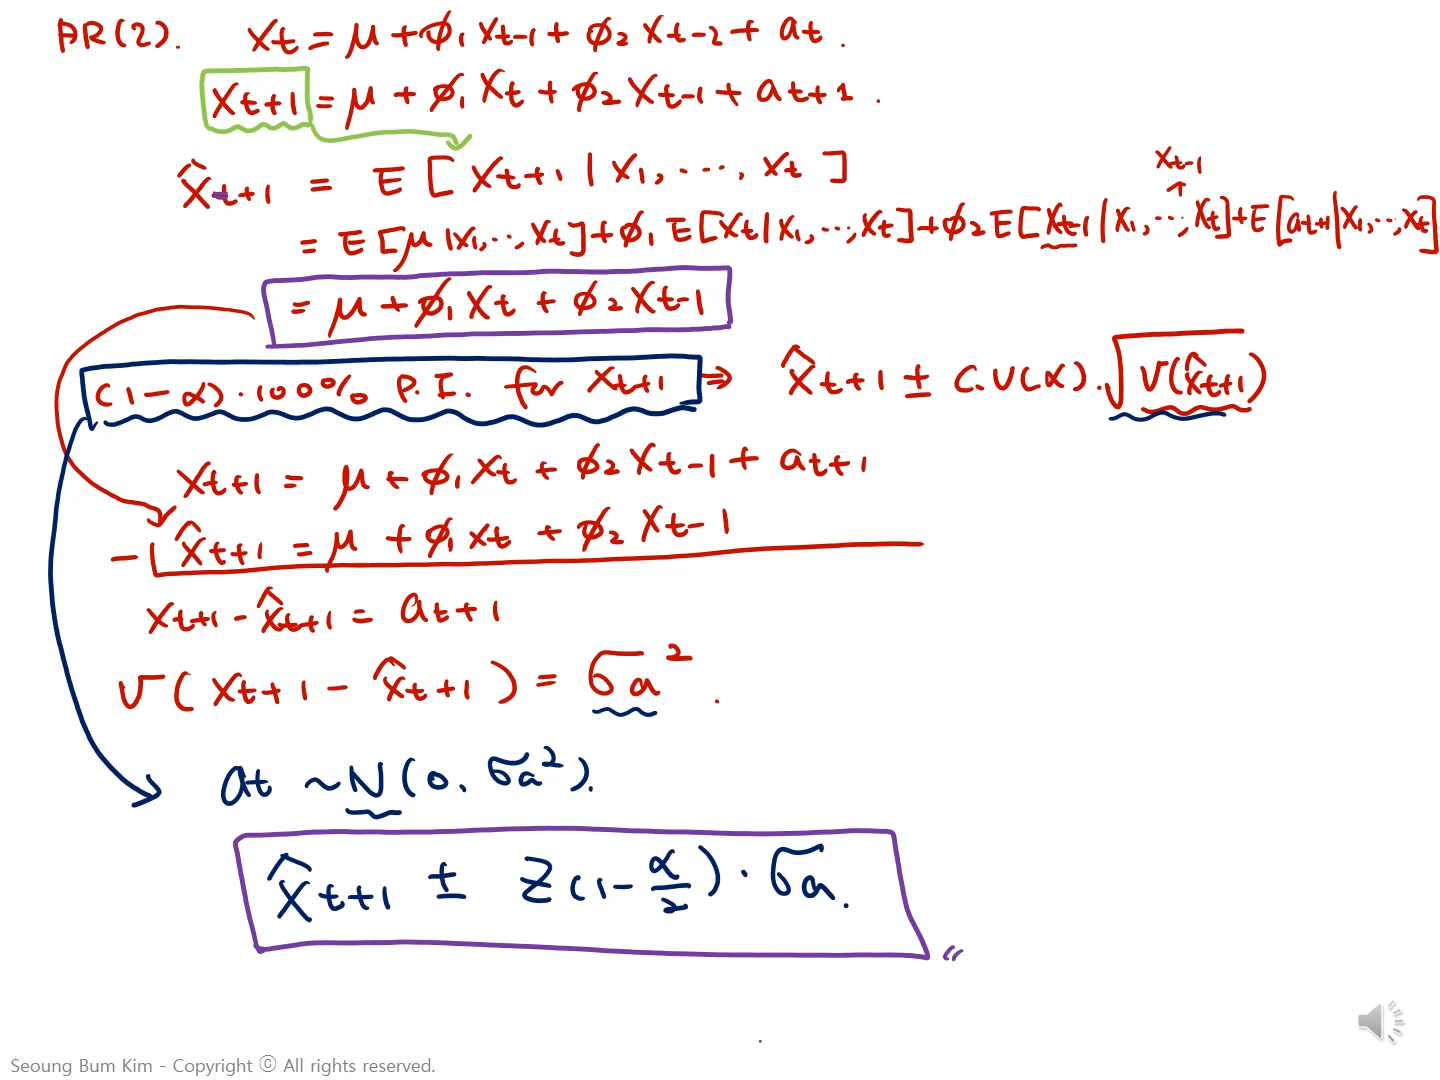 AR(2). Xt = μ + ϕ₁ Xt-1 + ϕ₂ Xt-2 + at.
Xt+1 = μ + ϕ₁ Xt + ϕ₂ Xt-1 + at+1.
X̂t+1 = E [ Xt+1 | X1, ..., Xt ]
Xt-1
= E [μ | X1, .., Xt] + ϕ₁ E [Xt | X1, ..., Xt] + ϕ₂ E [Xt-1 | X1, ..., Xt] + E [at+1 | X1, .., Xt]
= μ + ϕ₁ Xt + ϕ₂ Xt-1
(1-α)·100% P.I. for Xt+1 ⇒ X̂t+1 ± C.V(α)·√V(X̂t+1)
Xt+1 = μ + ϕ₁ Xt + ϕ₂ Xt-1 + at+1
- X̂t+1 = μ + ϕ₁ Xt + ϕ₂ Xt-1
Xt+1 - X̂t+1 = at+1
V( Xt+1 - X̂t+1 ) = σa².
at ~ N(0, σa²).
X̂t+1 ± Z(1-α/2)·σa.
Seoung Bum Kim - Copyright ⓒ All rights reserved.